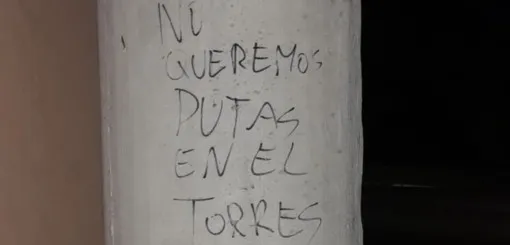 NI
QUEREMOS
PUTAS
EN EL
TORRES